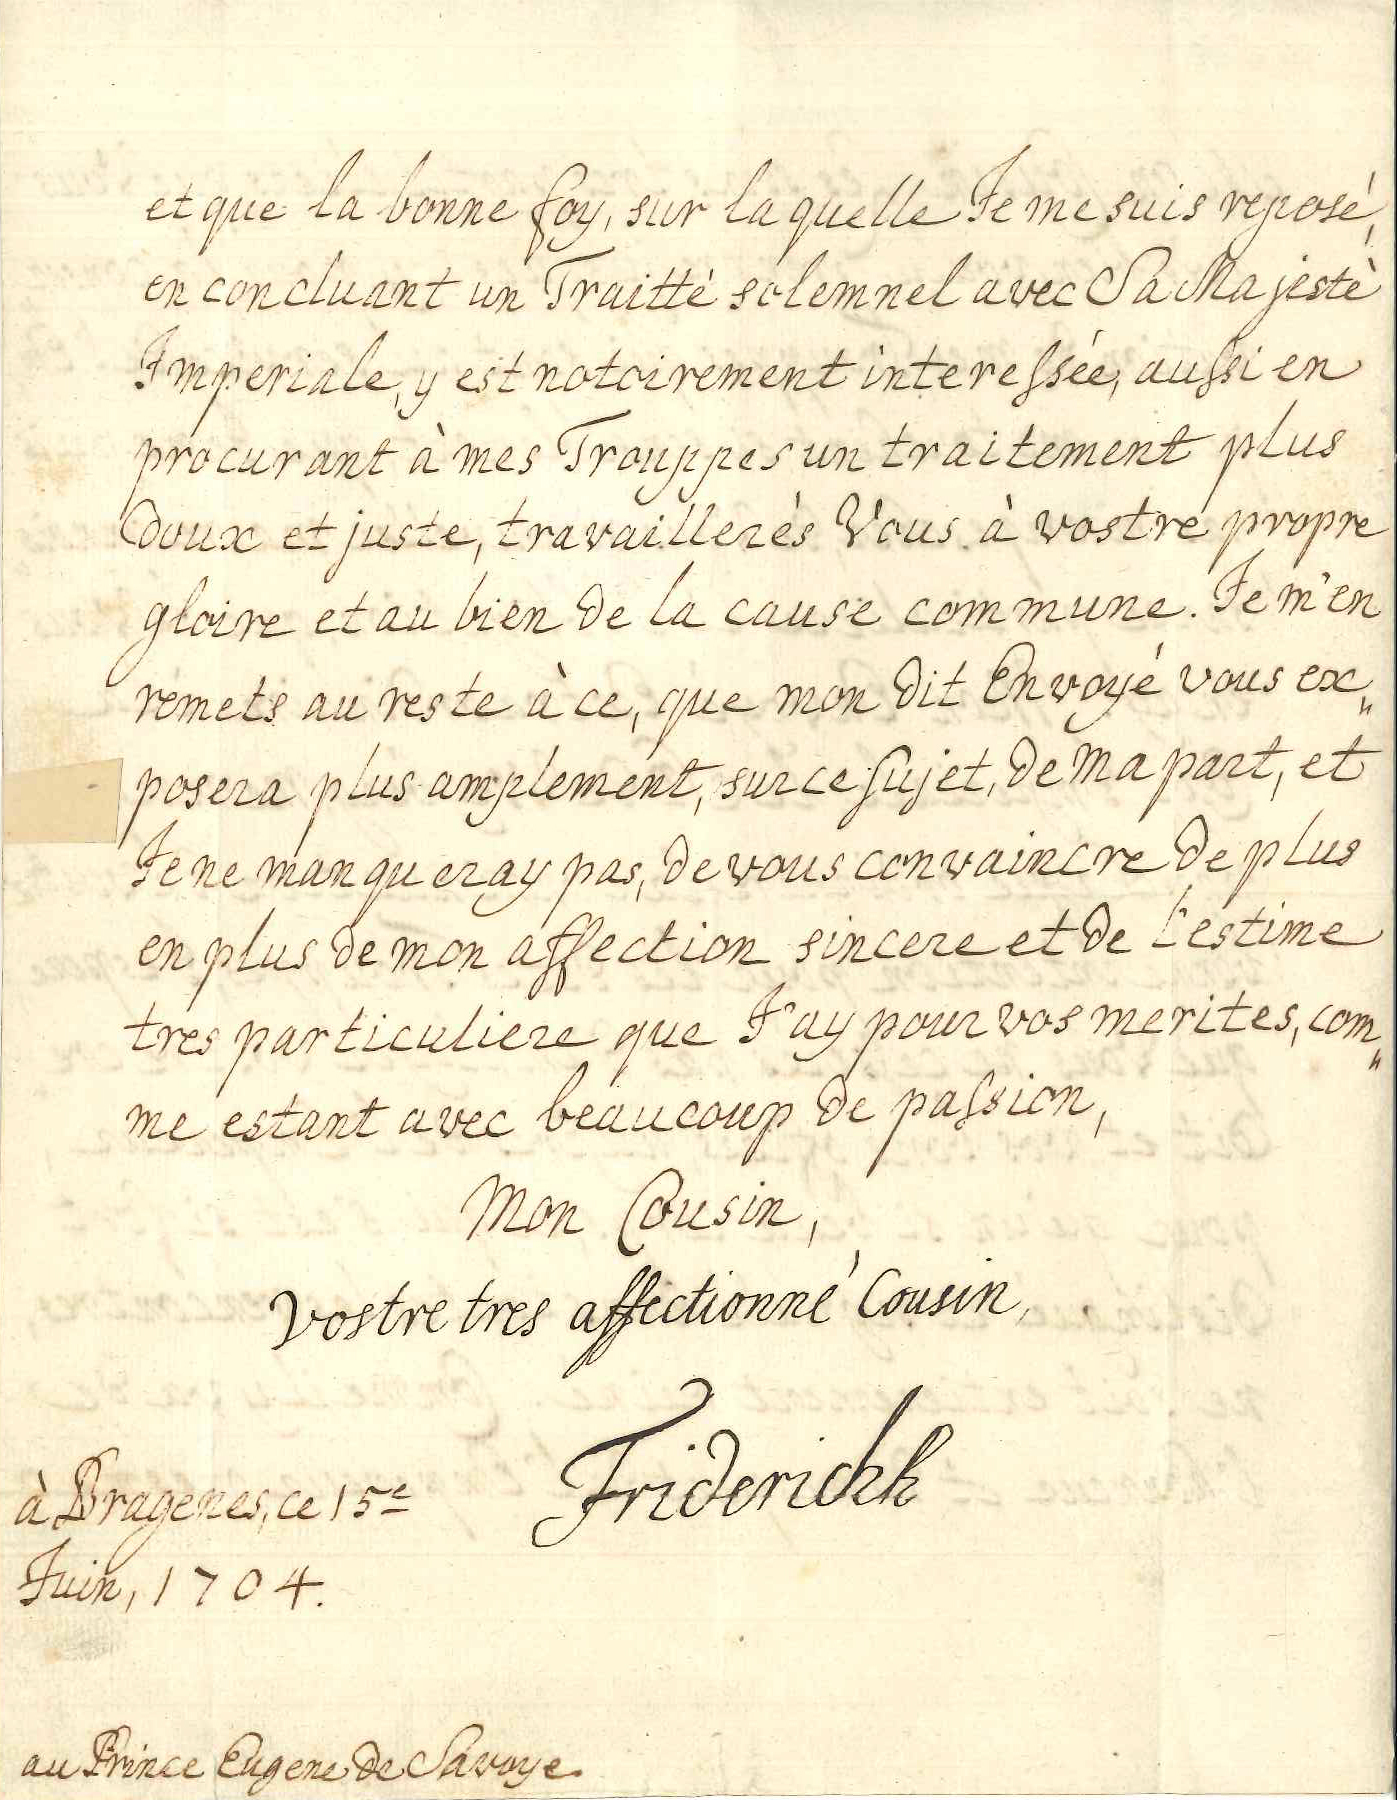 et que la bonne foy, sur laquelle Je me suis reposé,
en concluant un Traitté solemnel avec Sa Majesté
Imperiale, y est notoirement interessée, aussi en
procurant à mes Trouppes un traitement plus
doux et juste, travaillerés Vous à vostre propre
gloire et au bien de la cause commune. Je m'en
remets au reste à ce, que mon dit Envoyé vous ex„
posera plus amplement, sur ce sujet, de Ma part, et
Je ne manqueray pas, de vous convaincre de plus
en plus de mon affection sincere et de l'estime
tres particuliere que J'ay pour vos merites, com„
me estant avec beaucoup de passion,
Mon Cousin,
Vostre tres affectionné Cousin,
Friderich R
à Bragenes, ce 15e
Juin, 1704.
au Prince Eugene de Savoye.